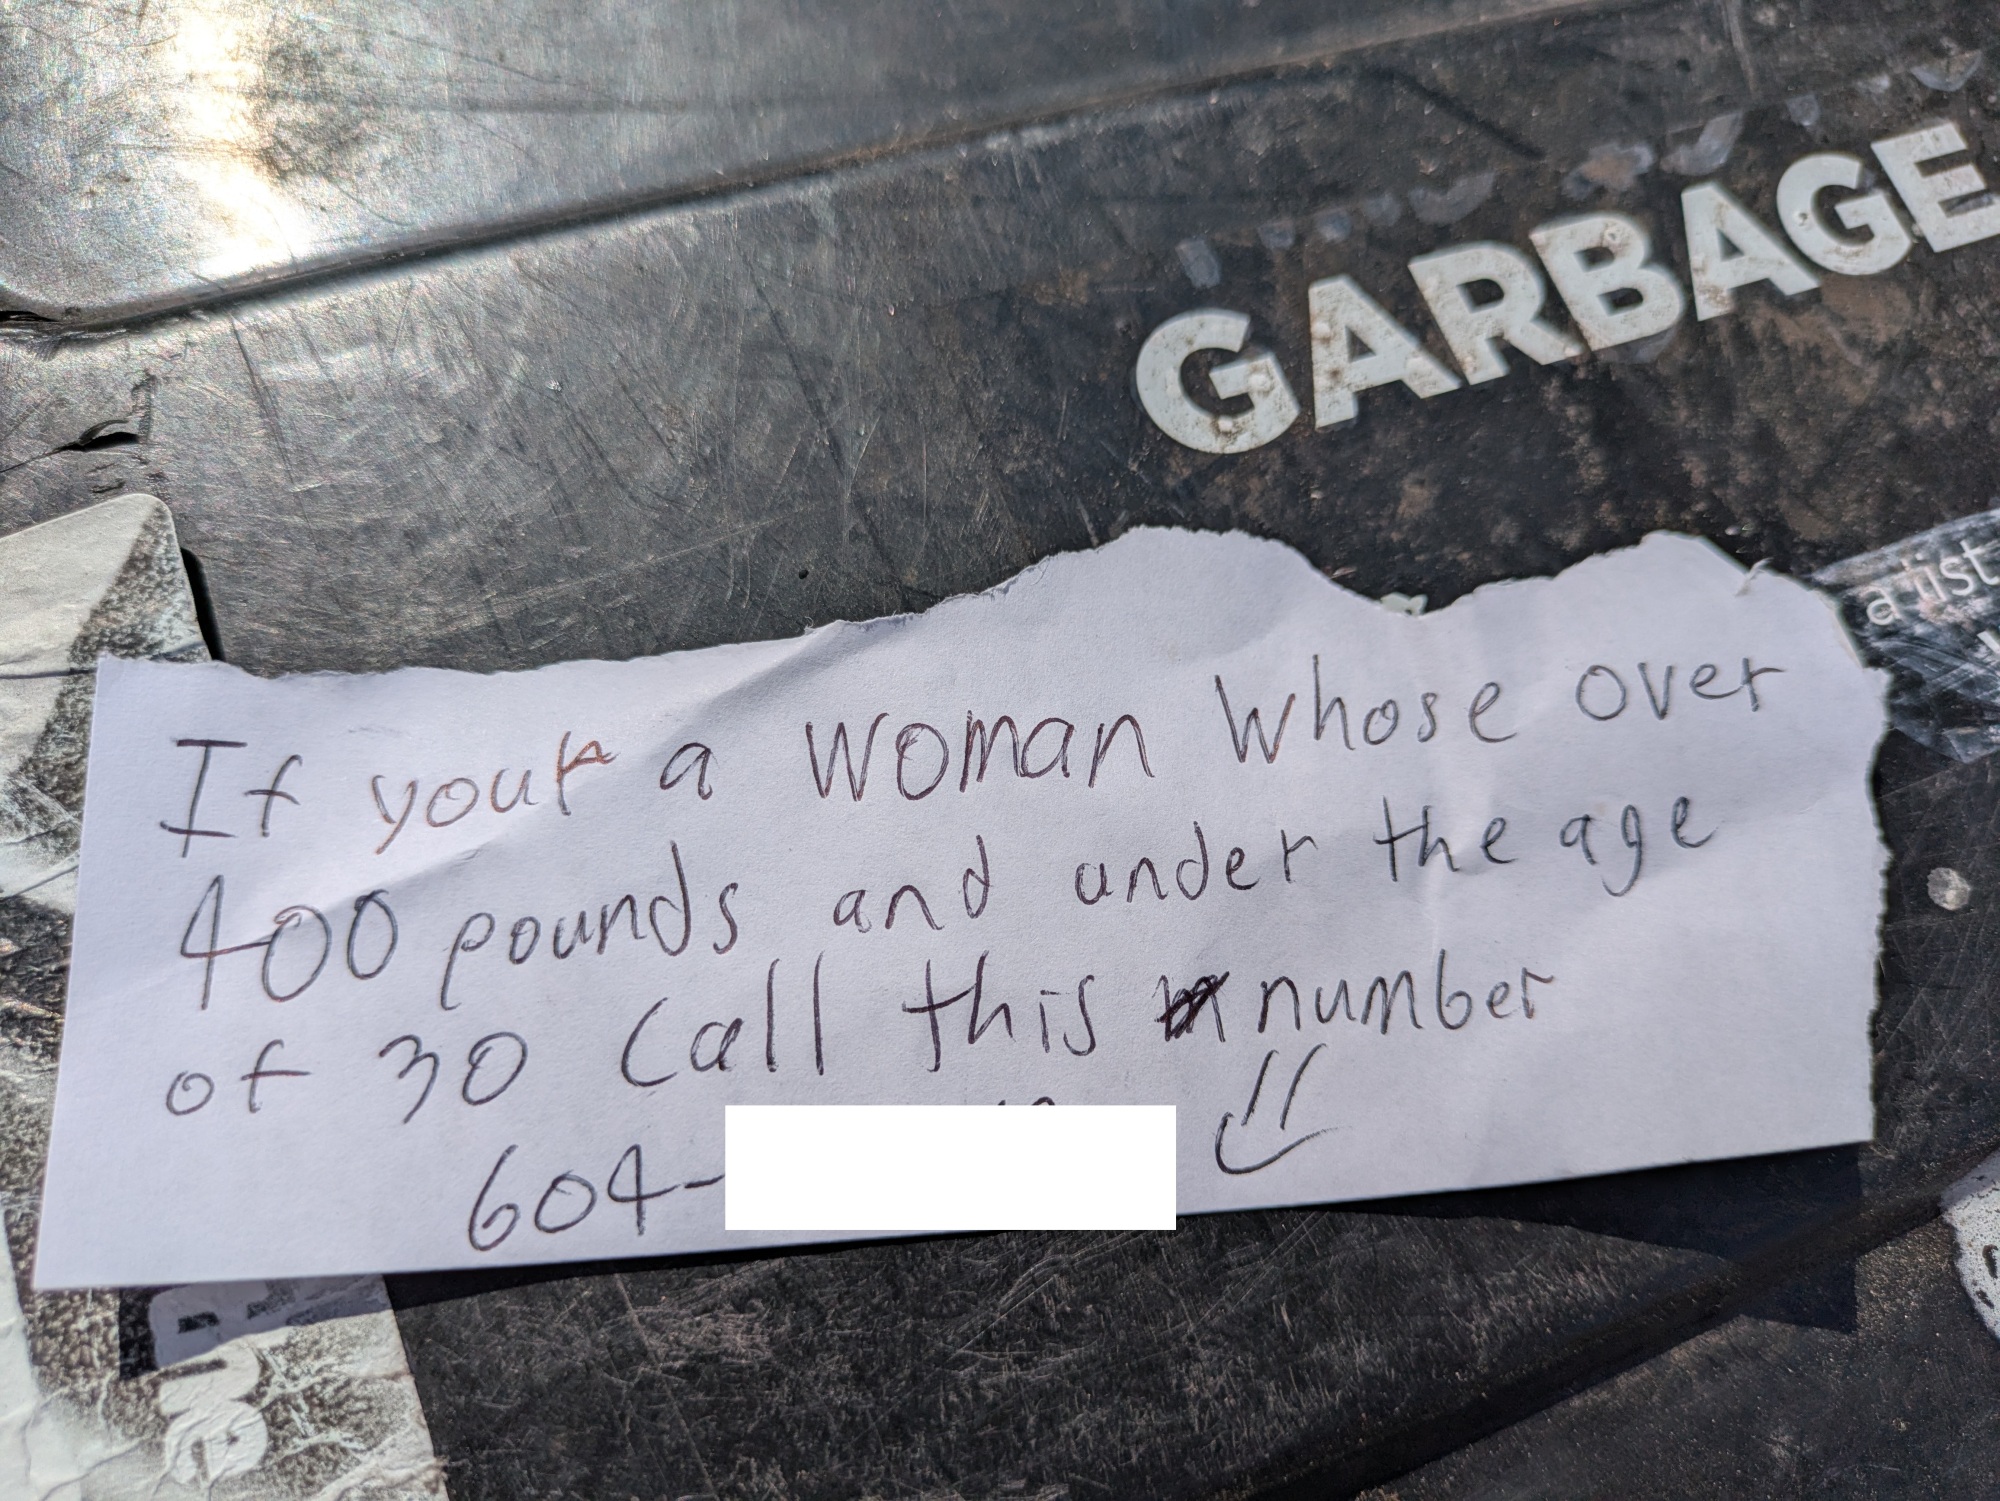 GARBAGE
If your a woman whose over
400 pounds and under the age
of 30 call this number
604-